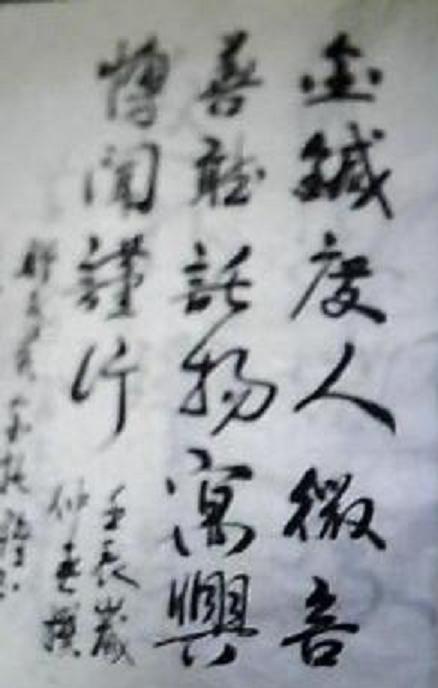 金鍼度人微言
善聽託物寓興
博聞謹行
壬辰歲
仲春撰